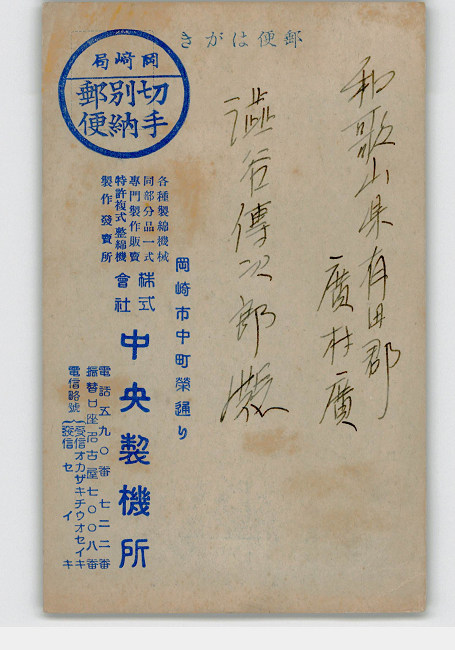 郵便はがき
和歌山県有田郡
廣村廣
澁谷傳次郎殿
岡崎局
切手
別納
郵便
岡崎市中町榮通り
各種製綿機械
同部分品一式
專門製作販賣
特許複式整綿機
製作發賣所
株式會社
中央製機所
電話五九〇番 七二二番
振替口座名古屋七〇〇八番
電信略號 受信オカザキチウオセイキ
發信セイキ